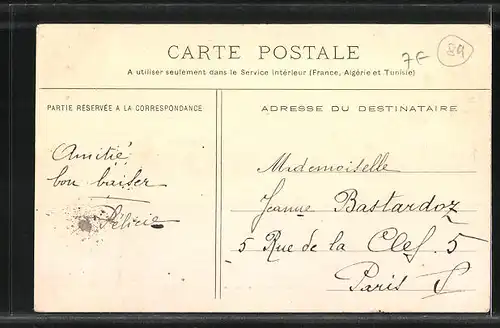 CARTE POSTALE
7F
89
A utiliser seulement dans le Service intérieur (France, Algérie et Tunisie)
PARTIE RÉSERVÉE A LA CORRESPONDANCE
ADRESSE DU DESTINATAIRE
Amitié,
bon baiser
Félicie
Mademoiselle
Jeanne Bastardoz
5 Rue de la Clef. 5
Paris